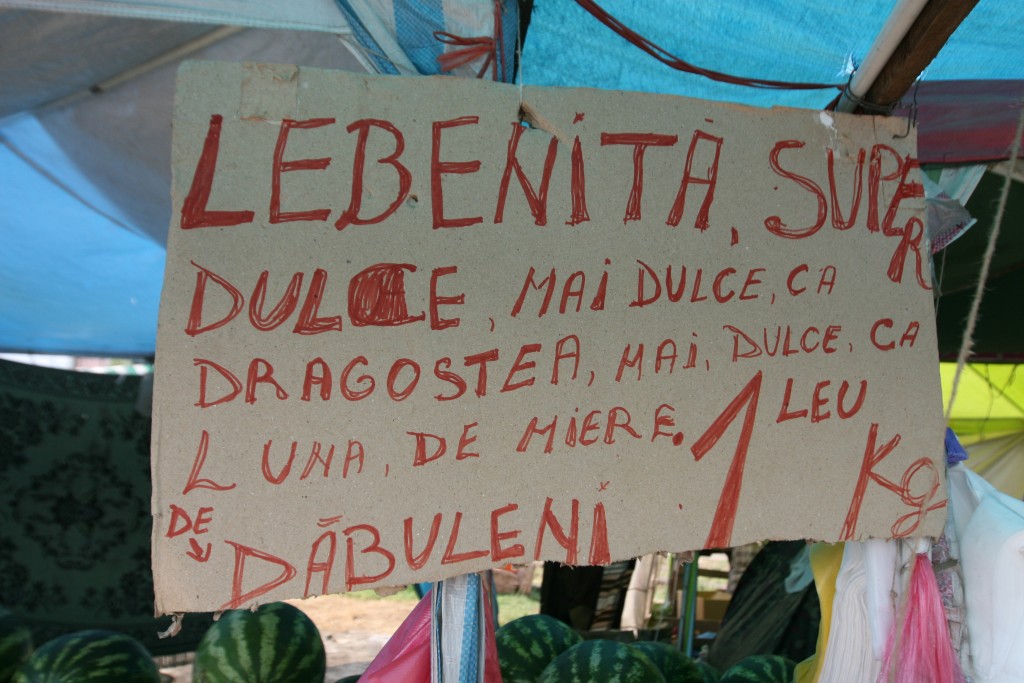 LEBENITA, SUPER
DULCE, MAI DULCE, CA
DRAGOSTEA, MAI, DULCE, CA
LUNA, DE MIERE. 1 LEU
Kg
DE
DĂBULENI